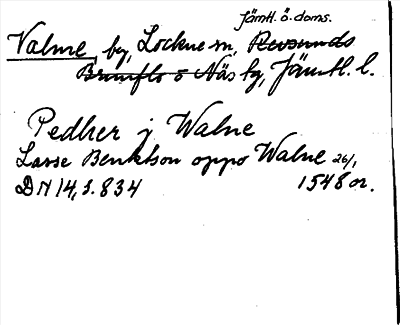 Jämtl. ö. doms.
Valne, by, Lockne sn, Revsunds
Brunflo o Näs tg, Jämtl. l.
Pedher j Walne
Lasse Benktson oppo Walne 26/1
DN 14, s. 834 1548 or.